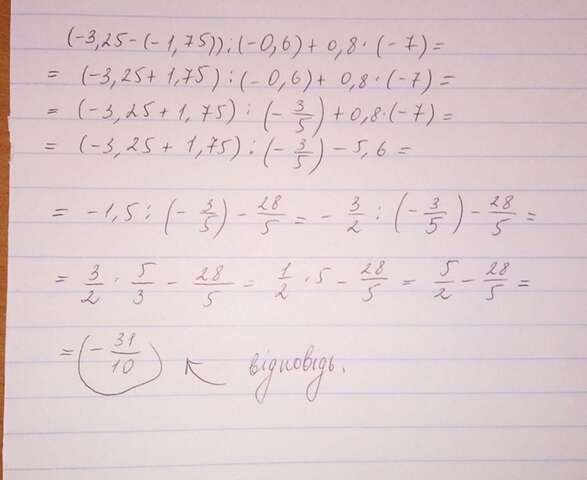 (-3,25-(-1,75)):(-0,6)+0,8·(-7)=
= (-3,25+1,75):(-0,6)+0,8·(-7)=
= (-3,25+1,75):(-3/5)+0,8·(-7)=
= (-3,25+1,75):(-3/5)-5,6=
= -1,5:(-3/5)-28/5=-3/2:(-3/5)-28/5=
= 3/2·5/3-28/5=1/2·5-28/5=5/2-28/5=
=(-31/10 відповідь.